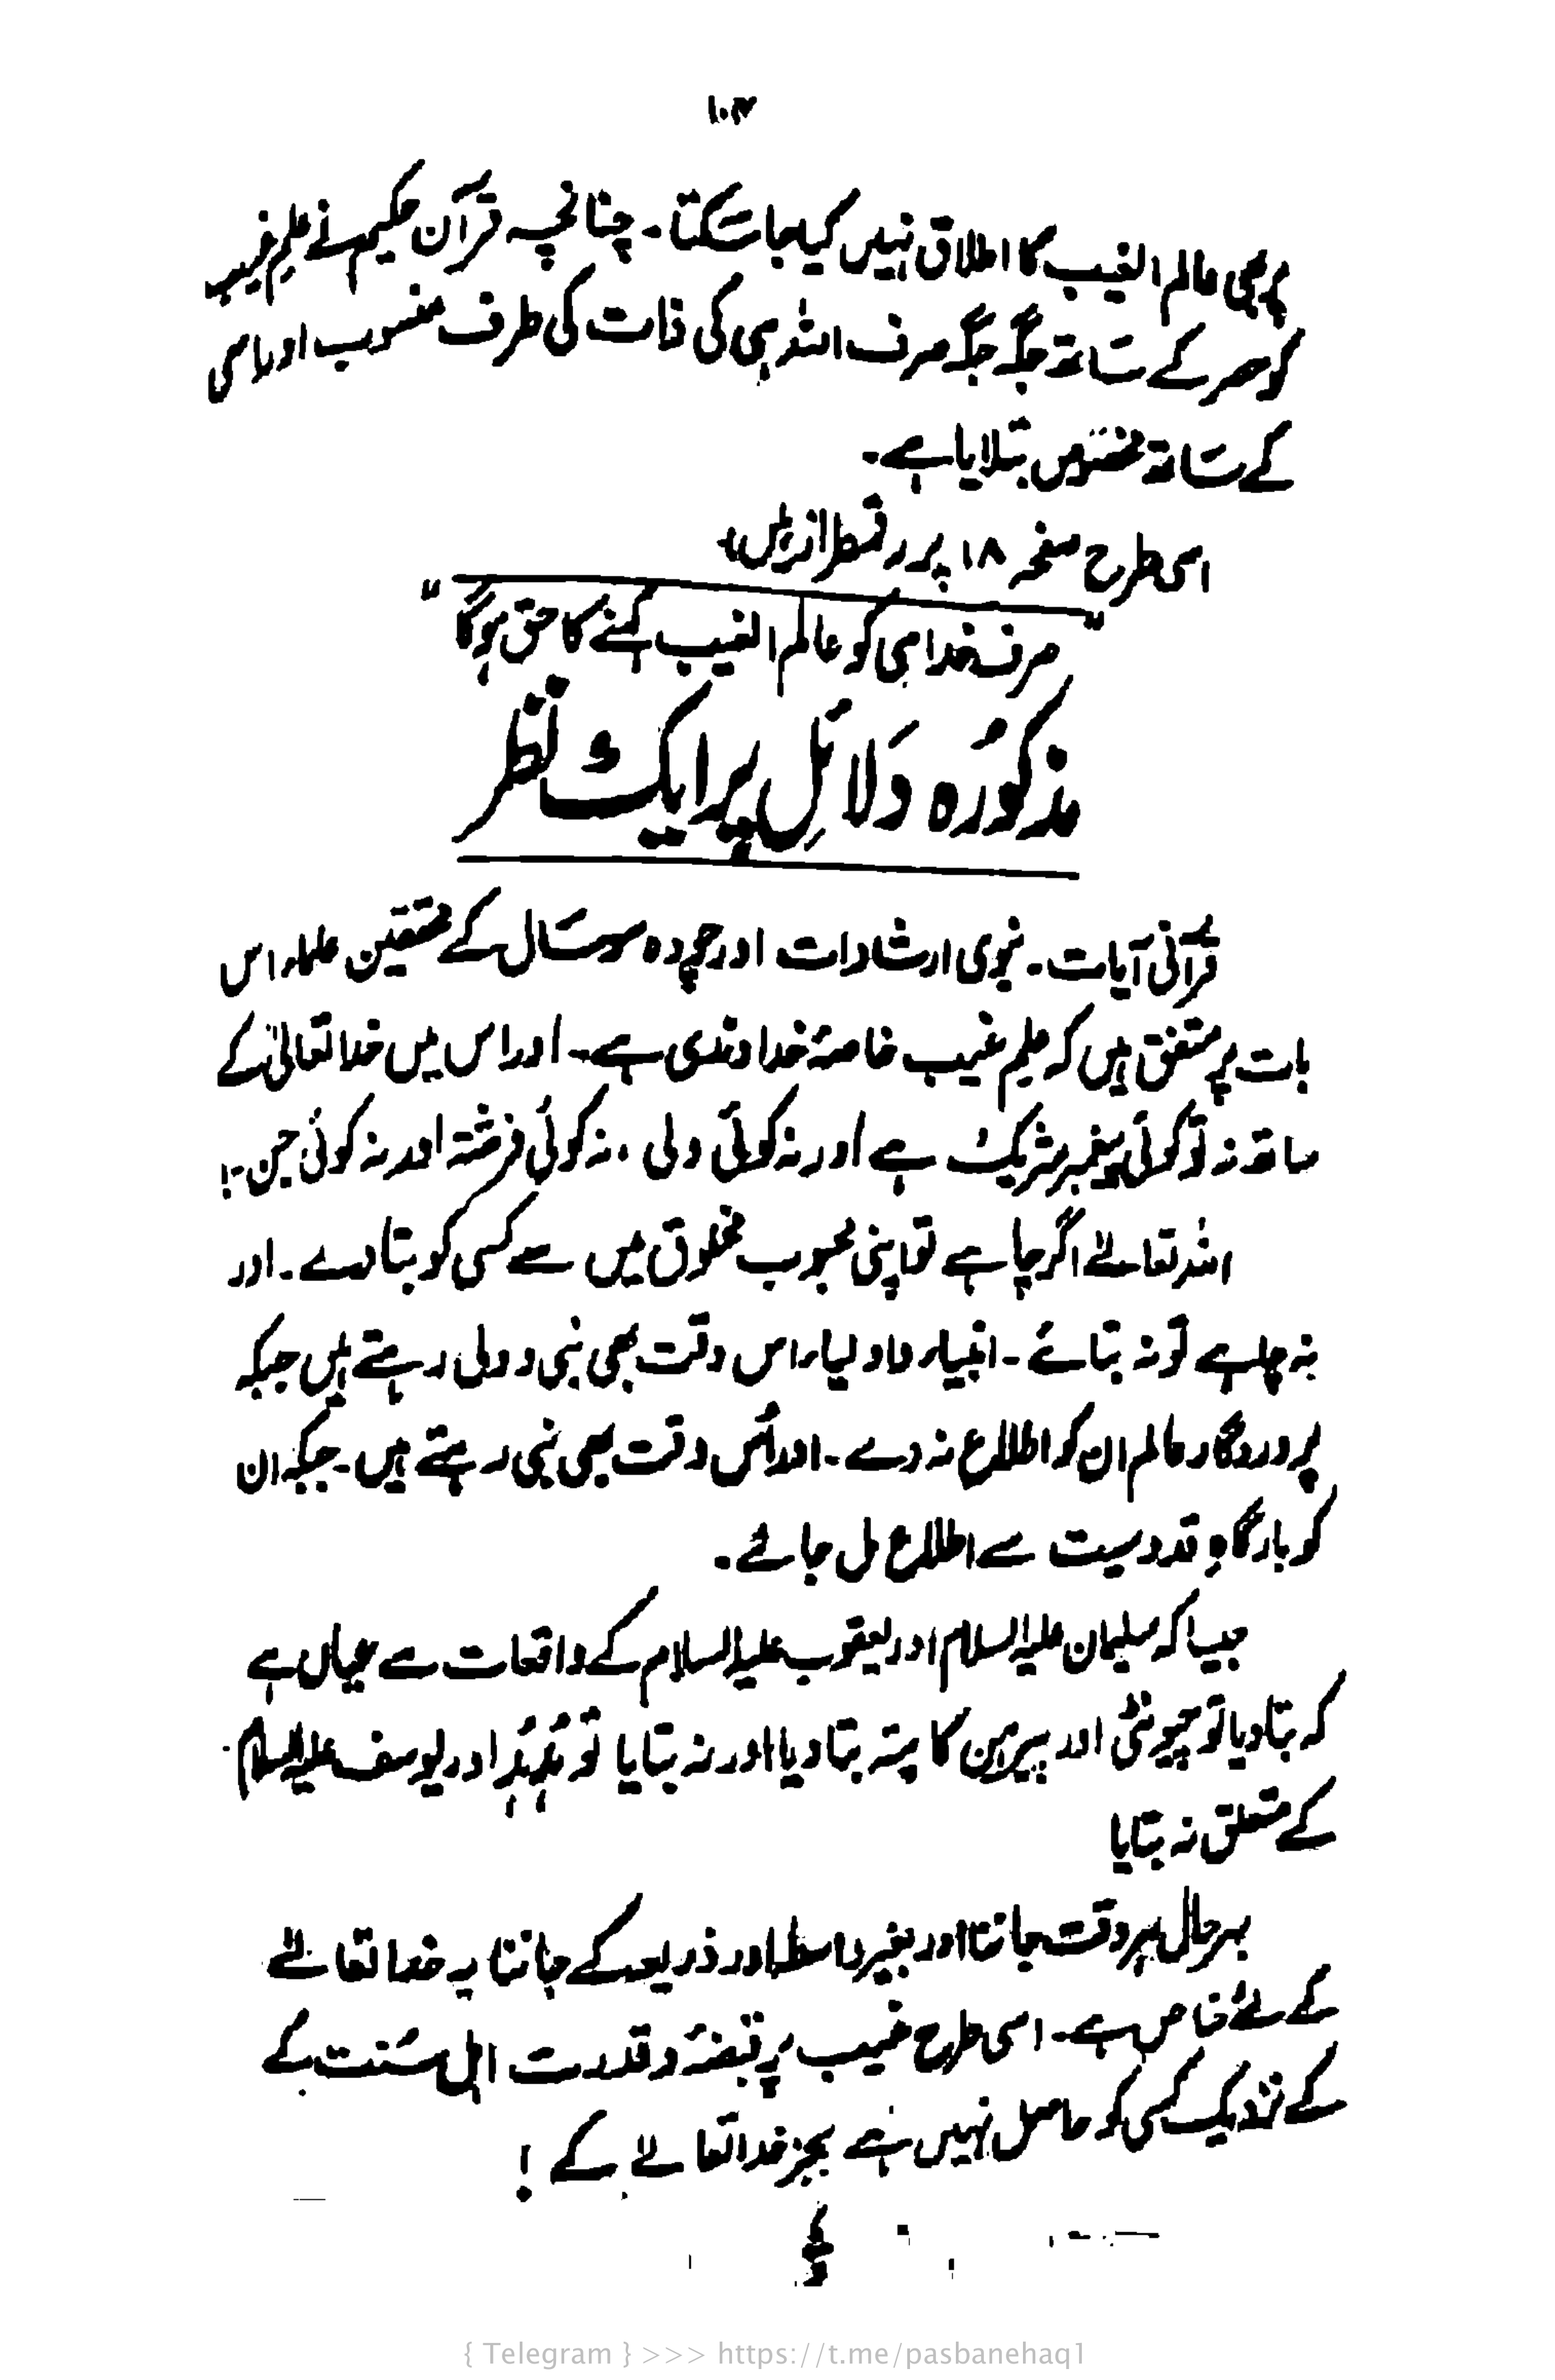 ۱۰۴
پر بھی عالم الغیب کا اطلاق نہیں کیا جا سکتا۔ چنانچہ قرآن حکیم نے علم غیب
کو حصر کے ساتھ جگہ جگہ صرف اللہ ہی کی ذات کی طرف منسوب اور اسی
کے ساتھ مختص بتلایا ہے۔
اسی طرح صفحہ ۱۸ پر رقمطراز ہیں،
"صرف خدا ہی کو عالم الغیب کہنے کا حق ہوگا"
مذکورہ دلائل پر ایک نظر
قرآنی آیات۔ نبوی ارشادات اور چودہ سو سال کے محققین علماء اس
بات پر متفق ہیں کہ علم غیب خاصۂ خداوندی ہے۔ اور اس میں خدا تعالیٰ کے
ساتھ نہ تو کوئی پیغمبر شریک ہے اور نہ کوئی ولی، نہ کوئی فرشتہ اور نہ کوئی جن۔!
اللہ تعالےٰ اگر چاہے تو اپنی محبوب مخلوق میں سے کسی کو بتا دے۔ اور
نہ چاہے تو نہ بتائے۔ انبیاء و اولیاء اس وقت بھی نبی و ولی رہتے ہیں جبکہ
پروردگار عالم ان کو اطلاع نہ دے۔ اور اُس وقت بھی نبی رہتے ہیں۔ جبکہ ان
کو بارگاہِ قدوسیت سے اطلاع مل جائے۔
جیسا کہ سلیمان علیہ السلام اور یعقوب علیہ السلام کے واقعات سے عیاں ہے
کہ بتا دیا تو چیونٹی اور پیرہن کا پتہ بتا دیا اور نہ بتایا تو ہُدہُد اور یوسف علیہ السلام
کے متعلق نہ بتایا
بہر حال ہر وقت جاننا اور بغیر واسطہ اور ذریعہ کے جاننا یہ خدا تعالےٰ
کے لئے خاص ہے۔ اسی طرح غیب پر قبضہ و قدرت اہل سنت کے
کے نزدیک کسی کو حاصل نہیں ہے بجز خدا تعالےٰ کے !
{ Telegram } >>> https://t.me/pasbanehaq1